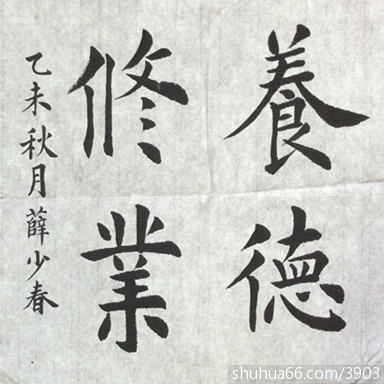 養德
修業
乙未秋月薛少春
shuhua66.com/3903